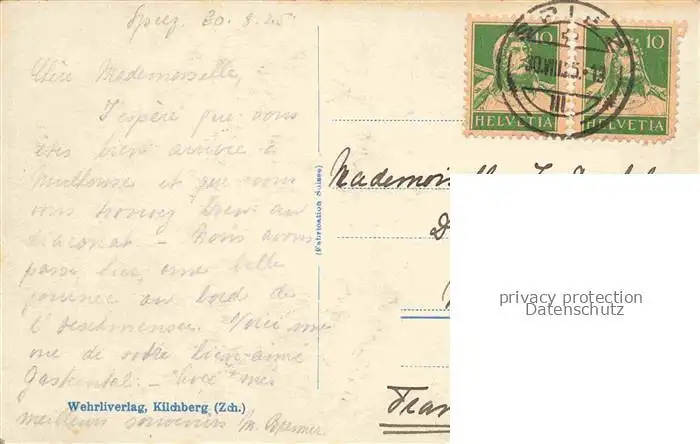 Spiez 30.8.25
Chère Mademoiselle, -
J'espère que vous
êtes bien arrivée à
Mulhouse et que vous
vous trouvez bien au
diaconat - Nous avons
passé hier une belle
journée au bord de
l'Oeschinensee. Voici une
vue de votre bien-aimé
Gasterntal. -
meilleurs souvenirs
Wehrliverlag, Kilchberg (Zch.)
(Fabrication Suisse)
SPIEZ
30.VIII.25.-19
10
HELVETIA
10
HELVETIA
Mademois
D
Fran
privacy protection
Datenschutz